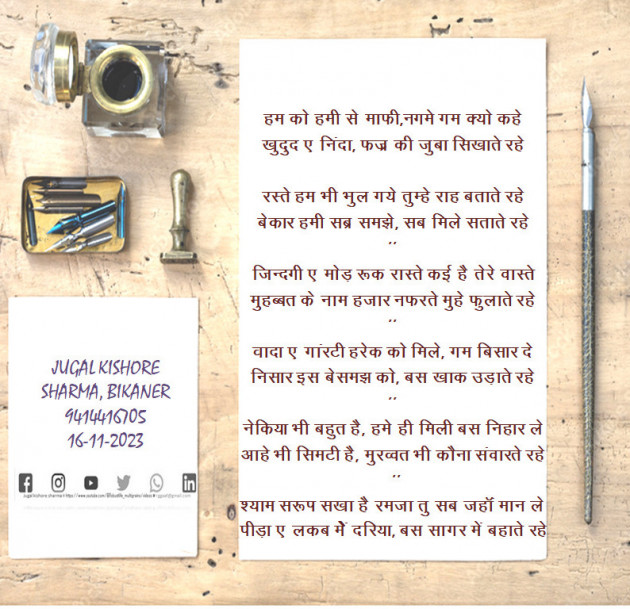 हम को हमी से माफी,नगमे गम क्यो कहे
खुदुद ए निंदा, फज्र की जुबा सिखाते रहे
रस्ते हम भी भुल गये तुम्हे राह बताते रहे
बेकार हमी सब्र समझे, सब मिले सताते रहे
,,
जिन्दगी ए मोड़ रूक रास्ते कई है तेरे वास्ते
मुहब्बत के नाम हजार नफरते मुहे फुलाते रहे
,,
वादा ए गांरटी हरेक को मिले, गम बिसार दे
निसार इस बेसमझ को, बस खाक उड़ाते रहे
,,
नेकिया भी बहुत है, हमे ही मिली बस निहार ले
आहे भी सिमटी है, मुरव्वत भी कौना संवारते रहे
,,
श्याम सरूप सखा है रमजा तु सब जहॉ मान ले
पीड़ा ए लकब में दरिया, बस सागर में बहाते रहे
JUGAL KISHORE
SHARMA, BIKANER
9414416705
16-11-2023